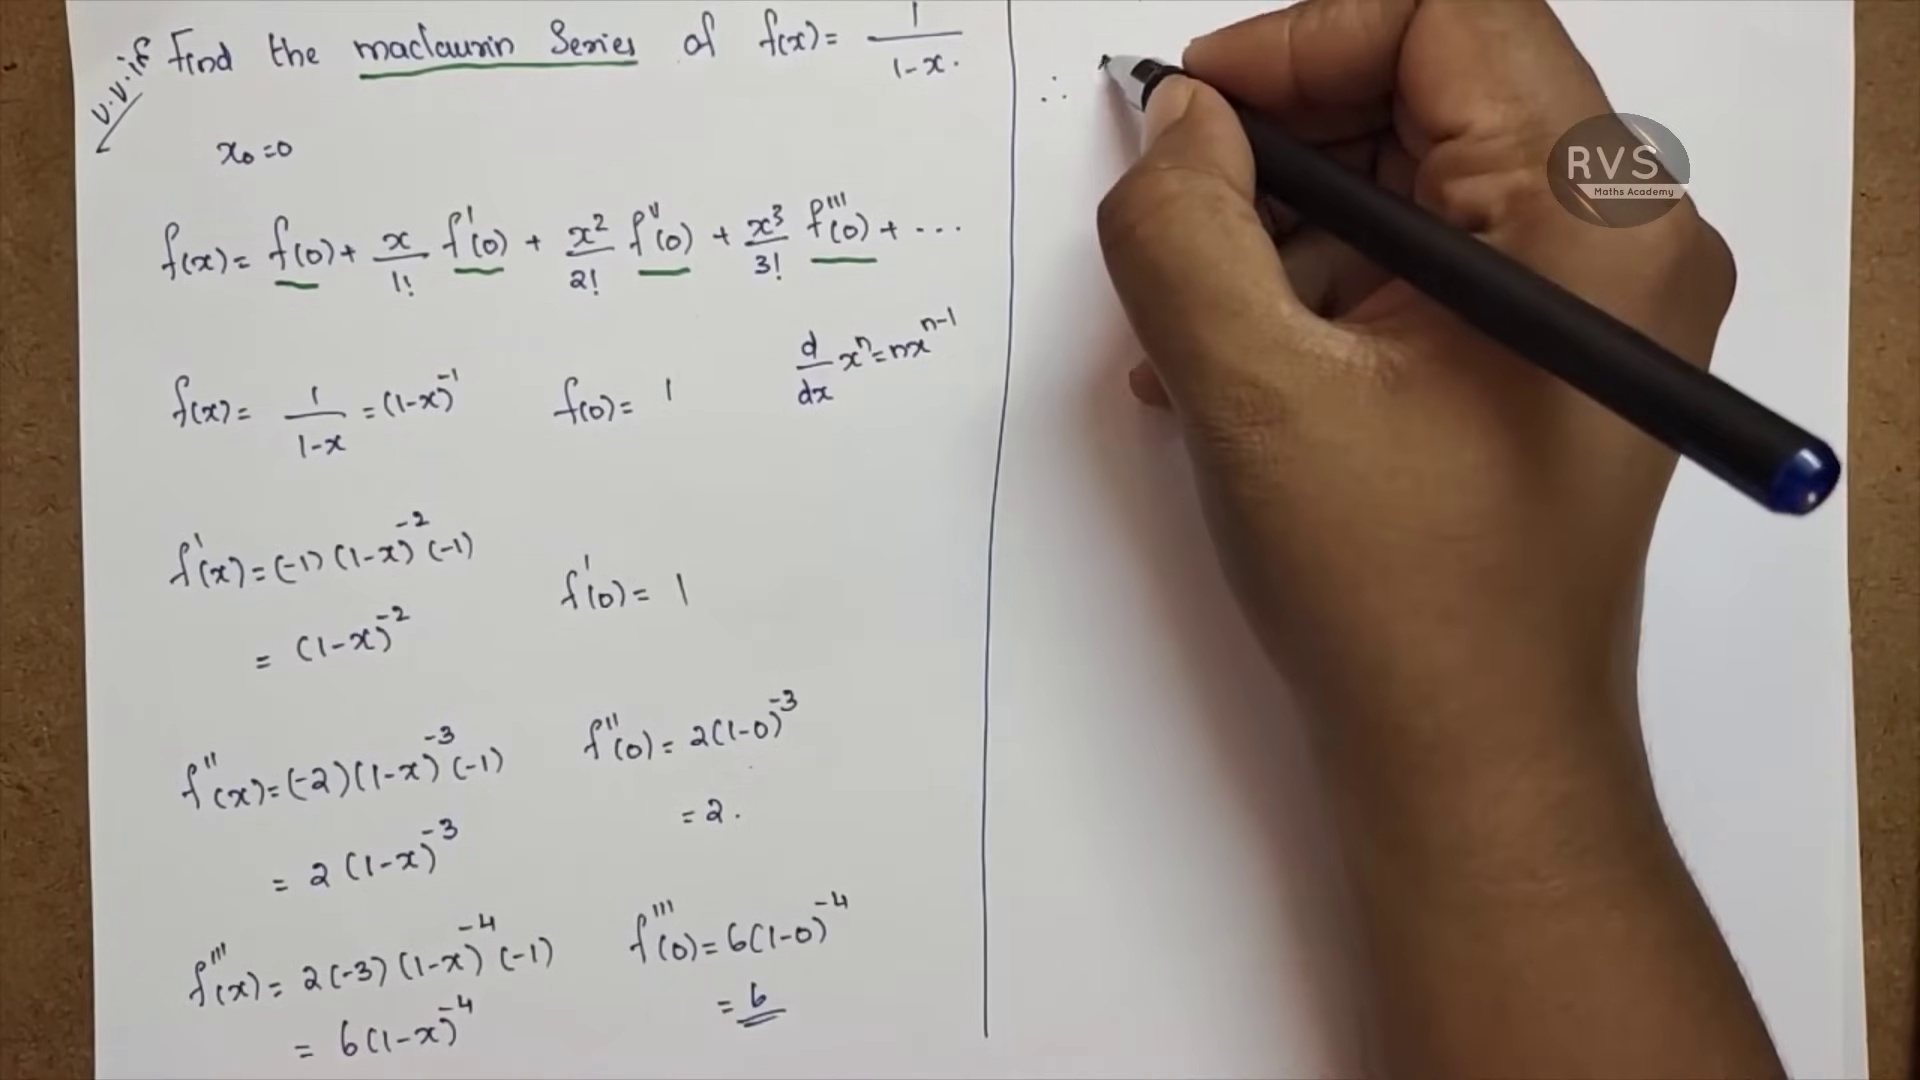 v.v.if Find the maclaurin Series of f(x) = 1/(1-x).
x₀=0
f(x) = f(0) + x/1! f'(0) + x²/2! f''(0) + x³/3! f'''(0) + ...
d/dx xⁿ = nxⁿ⁻¹
f(x) = 1/(1-x) = (1-x)⁻¹ f(0) = 1
f'(x) = (-1)(1-x)⁻²(-1)
= (1-x)⁻² f'(0) = 1
f''(x) = (-2)(1-x)⁻³(-1) f''(0) = 2(1-0)⁻³
= 2(1-x)⁻³ = 2.
f'''(x) = 2(-3)(1-x)⁻⁴(-1) f'''(0) = 6(1-0)⁻⁴
= 6(1-x)⁻⁴ = 6
∴
RVS
Maths Academy